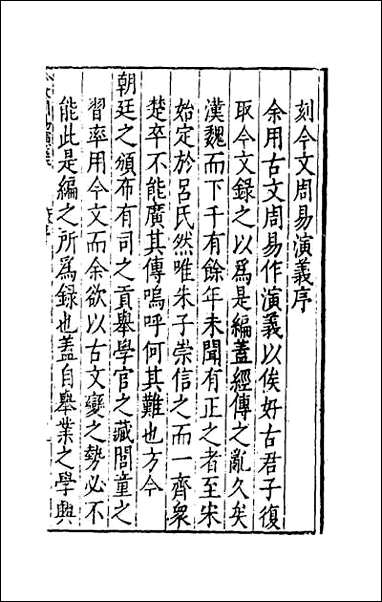 刻今文周易演義序
余用古文周易作演義以俟好古君子復
取今文錄之以為是編蓋經傳之亂久矣
漢魏而下千有餘年未聞有正之者至宋
始定於呂氏然唯朱子崇信之而一齊衆
楚卒不能廣其傳嗚呼何其難也方今
朝廷之頒布有司之貢舉學官之藏閭童之
習率用今文而余欲以古文變之勢必不
能此是編之所爲録也蓋自舉業之學興